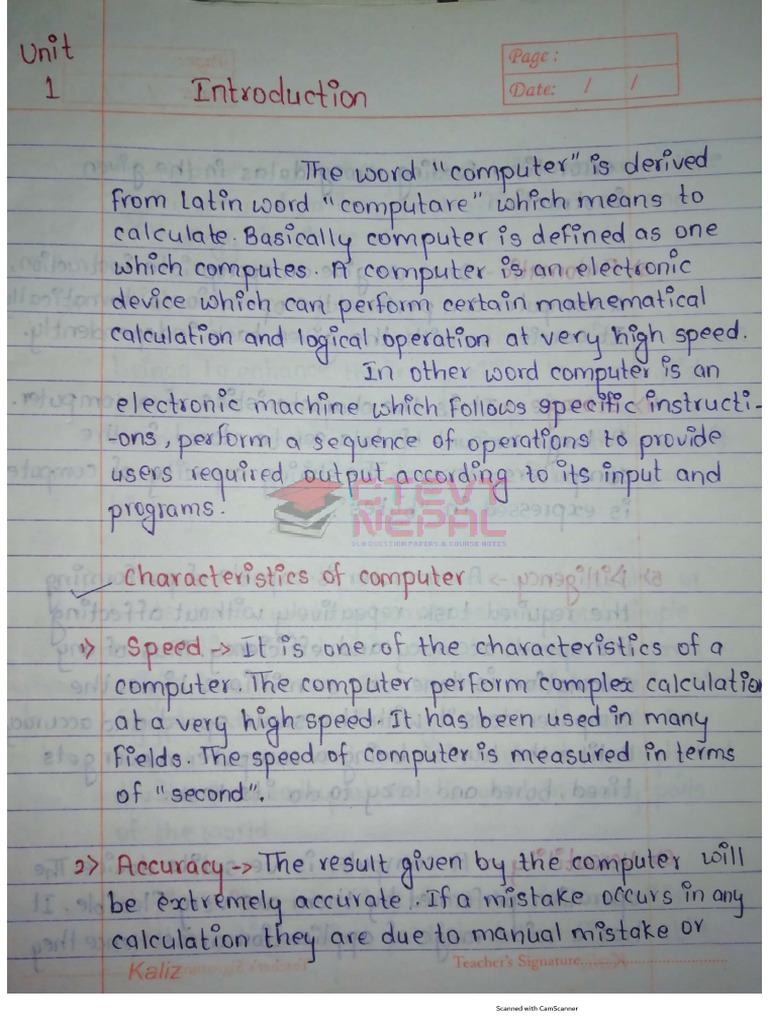 Unit
1
Introduction
Page :
Date: / /
The word "computer" is derived
from Latin word "computare" which means to
calculate. Basically computer is defined as one
which computes. A computer is an electronic
device which can perform certain mathematical
calculation and logical operation at very high speed.
In other word computer is an
electronic machine which follows specific instructi-
-ons, perform a sequence of operations to provide
users required output according to its input and
programs.
CTEVT
NEPAL
QUESTION PAPERS & COURSE NOTES
Characteristics of computer
1> Speed -> It is one of the characteristics of a
computer. The computer perform complex calculation
at a very high speed. It has been used in many
fields. The speed of computer is measured in terms
of "second".
2> Accuracy -> The result given by the computer will
be extremely accurate. If a mistake occurs in any
calculation they are due to manual mistake or
Kaliz
Teacher's Signature
Scanned with CamScanner